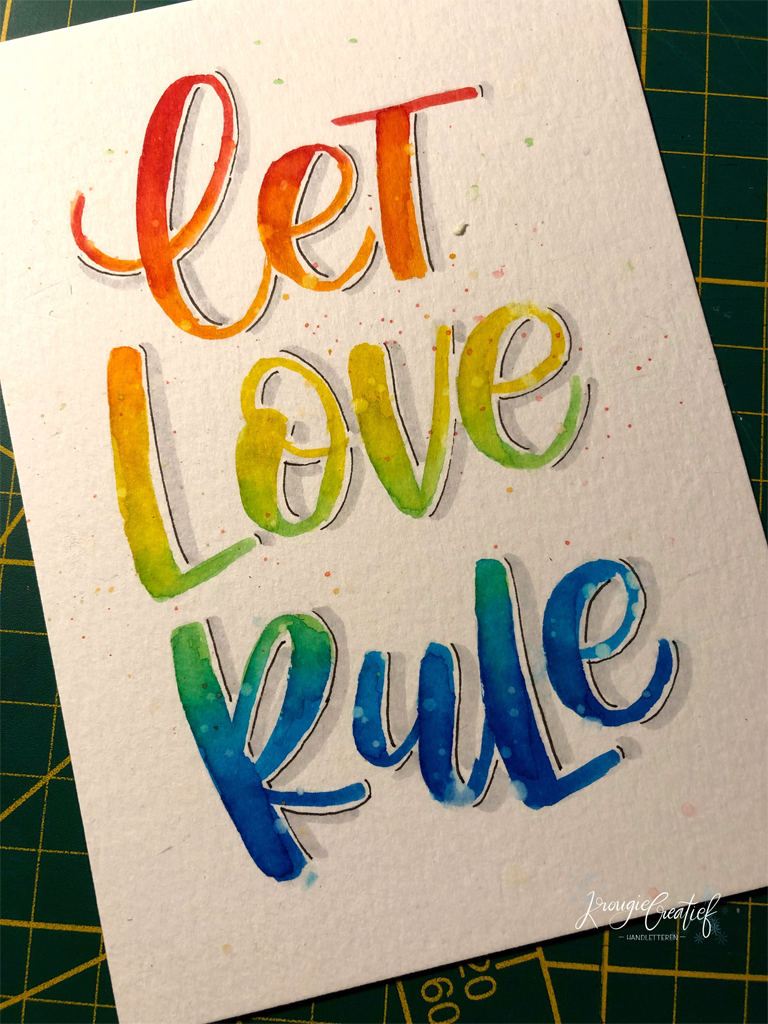 Let
Love
Rule
KrougieCreatief
HANDLETTEREN
20
60